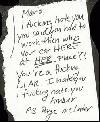 Mario,
I fucking hate you
you said you had to
work then whys
your car HERE
at HER place??
You're a fucking
LIAR I hate you
I fucking hate you
Amber
PS Page me later